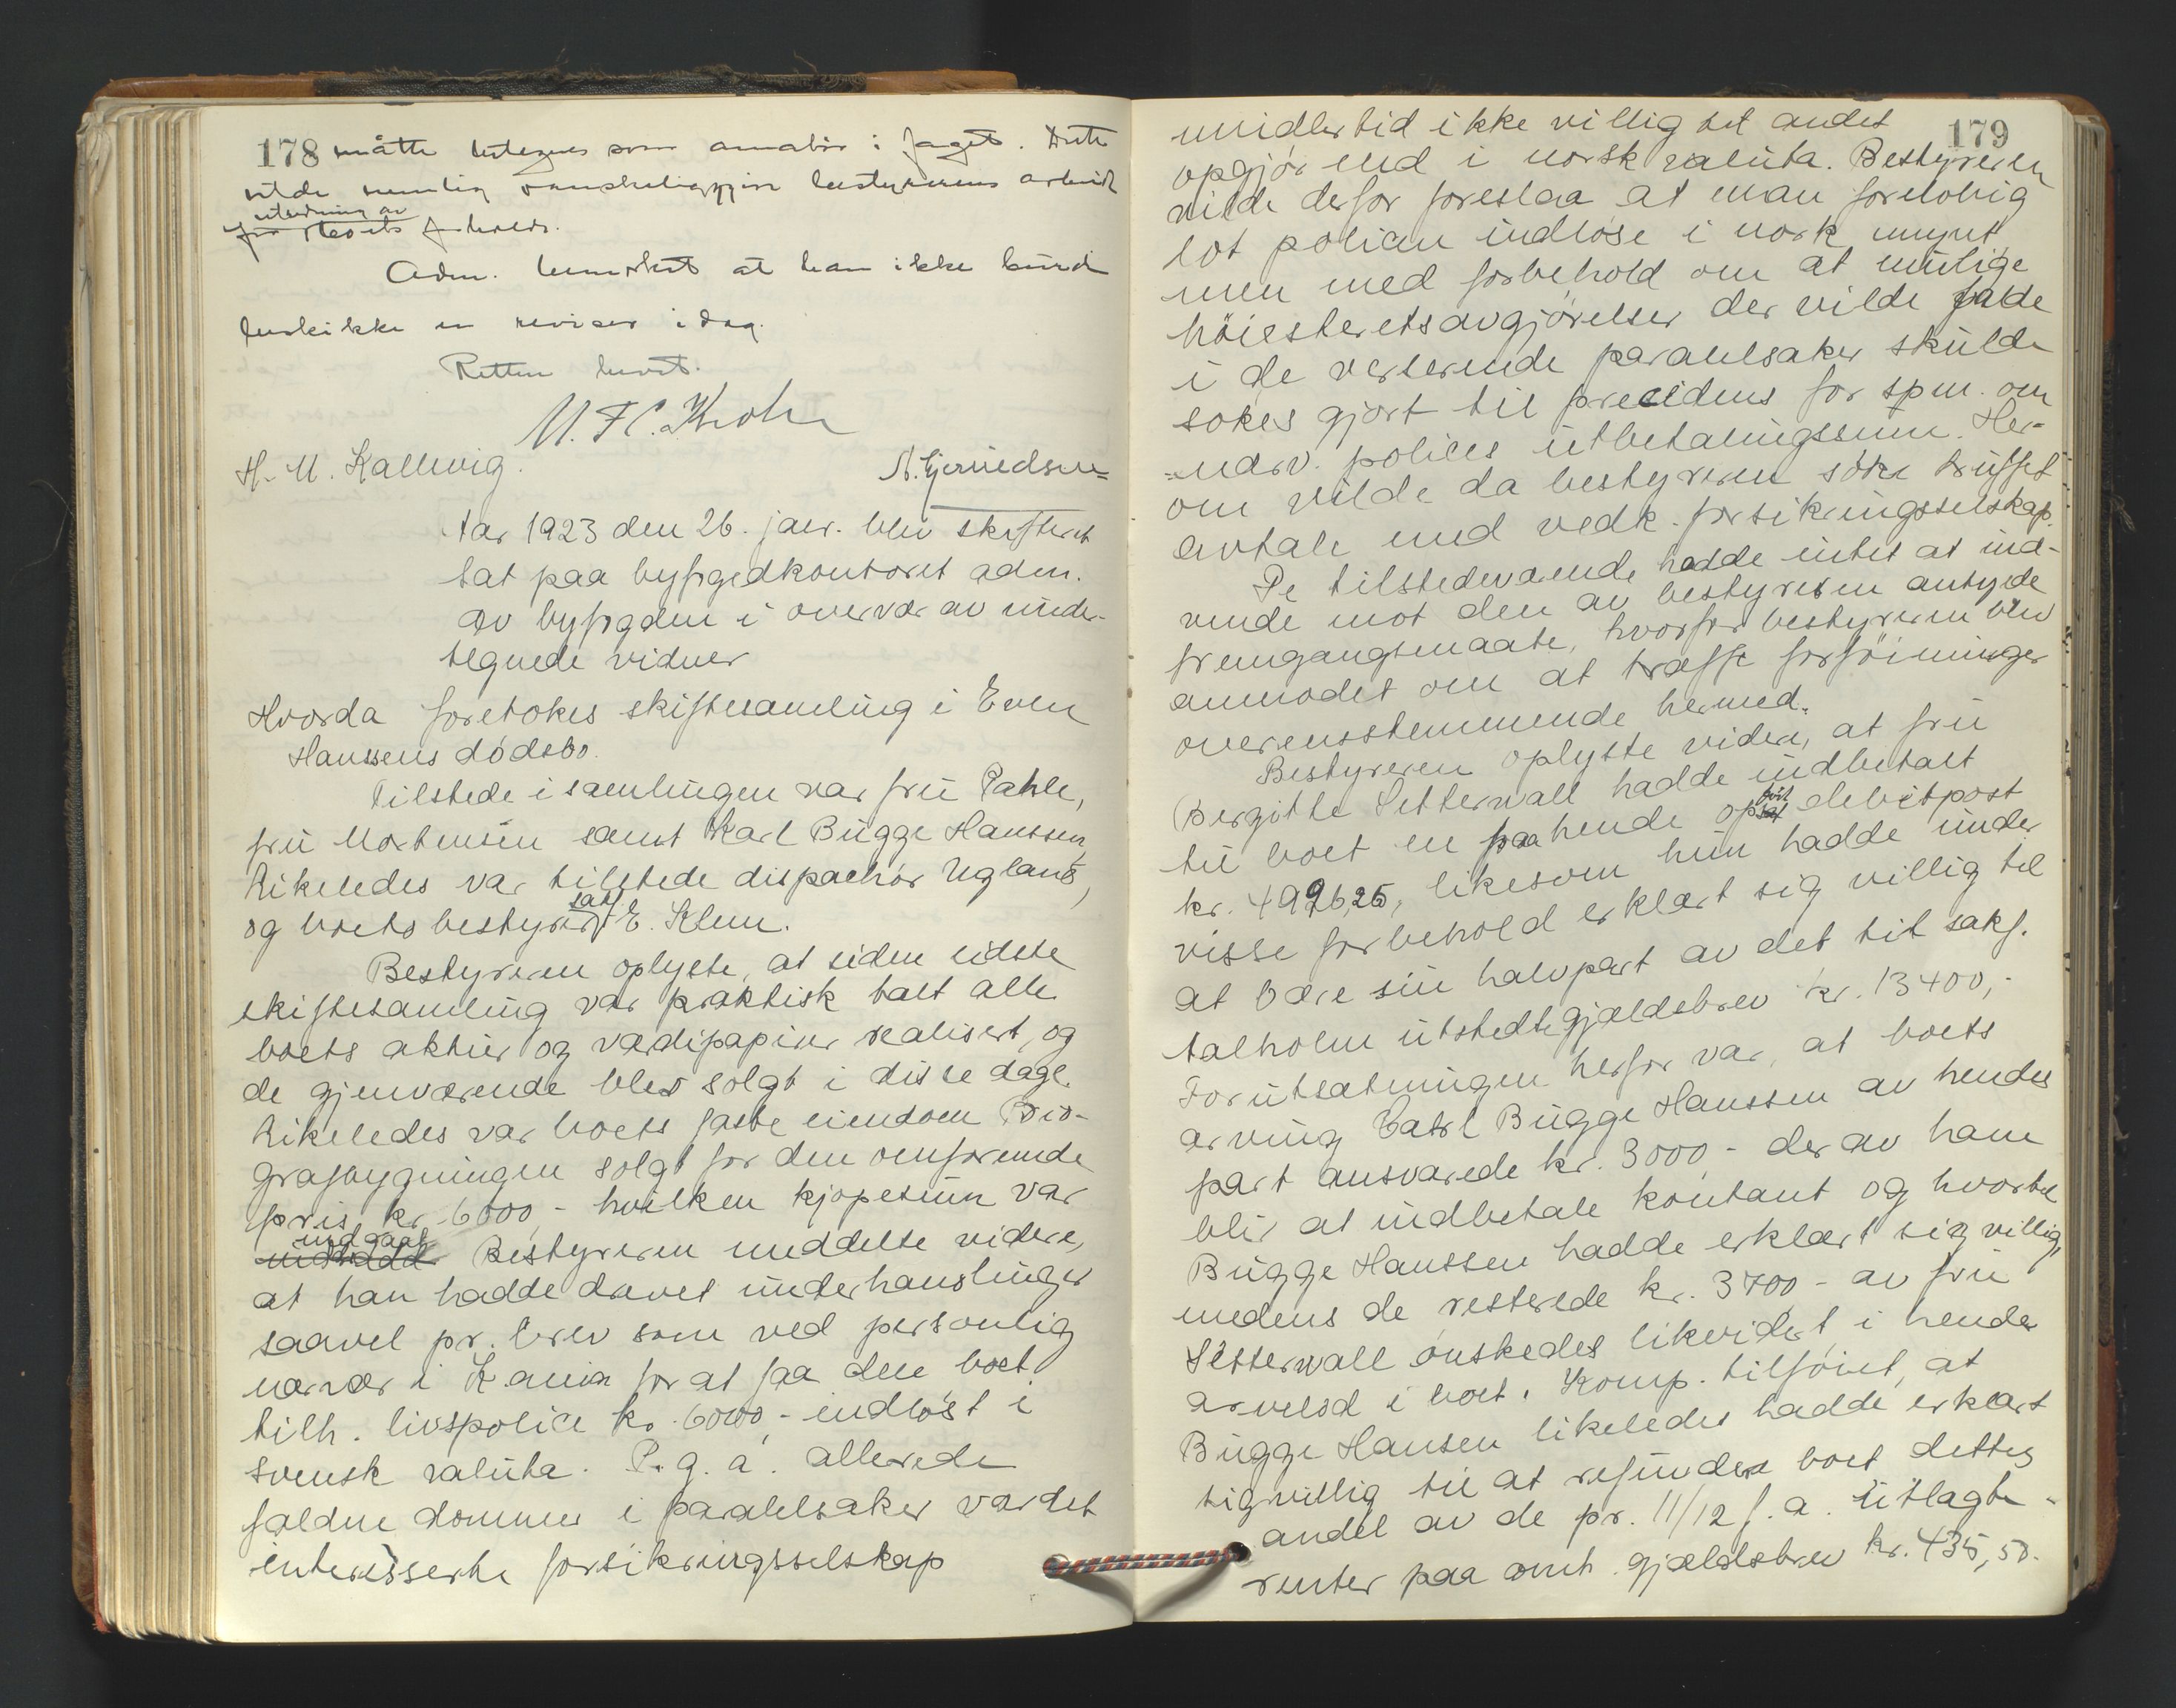 178 måtte betegnes som amatör i faget. Dette
vilde nemlig vanskeliggjøre bestyrerens arbeide
utredning av
for boets forhold.
Adm. bemerket at han ikke kunde
beskikke en revisor idag.
Retten hævet.
U. F. C. Krohn
H. M. Kallevig.
A. Gjeruldsen
Aar 1923 den 26. jan. blev skifteret
sat paa byfogedkontoret adm.
av byfogden i overvær av under-
tegnede vidner
Hvorda foretokes skiftesamling i Even
Hanssens dödsbo.
Tilstede i samlingen var fru Pahle,
fru Mortensen samt Karl Bugge Hanssen,
likeledes var tilstede dispachør Ugland,
saf
og boets bestyrer E. Klem.
Bestyreren oplyste, at siden sidste
skiftesamling var praktisk talt alle
boets aktier og værdipapirer realisert, og
de gjenværende blev solgt i disse dage.
Likeledes var boets faste eiendom Bio-
grafbygningen solgt for den omforenede
pris kr. 6000,- hvilken kjøpesum var
indgaat
Bestyreren meddelte videre,
at han hadde drevet underhanslinger
saavel pr. brev som ved personlig
nærvær i K.ania for at faa den boet
tilh. livspolice kr. 6000,- indløst i
svensk valuta. P.g.a. allerede
faldne dommer i paralelsaker var det
interesserte forsikringsselskap
179
imidlertid ikke villig til andet
opgjör end i norsk valuta. Bestyreren
vilde derfor foreslaa at man foreløbig
lot policen indløse i norsk mynt,
men med forbehold om at mulige
höiesteretsavgjörelser der vilde falde
i de verserende paralelsaker skulde
søkes gjort til precidens for spm. om
nærv. polices utbetalingssum. Her-
om vilde da bestyreren søke truffet
avtale med vedk. forsikringsselskap.
De tilstedeværende hadde intet at ind-
vende mot den av bestyreren antydede
fremgangsmaate, hvorfor bestyreren blev
anmodet om at træffe forföininger
overensstemmende hermed.
Bestyreren oplyste videre, at fru
Bergitte Setterwall hadde indbetalt
ført
til boet en paa hende op debitpost
kr. 4996,25, likesom hun hadde under
visse forbehold erklært sig villig til
at bære sin halvpart av det til sakf.
Talholm utstedte gjældsbrev kr. 13400,-
Forutsætningen herfor var, at boets
arving Carl Bugge Hanssen av hendes
part ansvarede kr. 3000,- der av ham
blir at indbetale kontant og hvortil
Bugge Hanssen hadde erklært sig villig,
medens de resterede kr. 3700,- av fru
Setterwall ønskedes likvidert i hendes
arvelod i boet. Komp. tilföiet, at
Bugge Hansen likeledes hadde erklært
sig villig til at refundere boet dettes
andel av de pr. 11/12 f. a. utlagte
renter paa omh. gjældsbrev kr. 435,50.